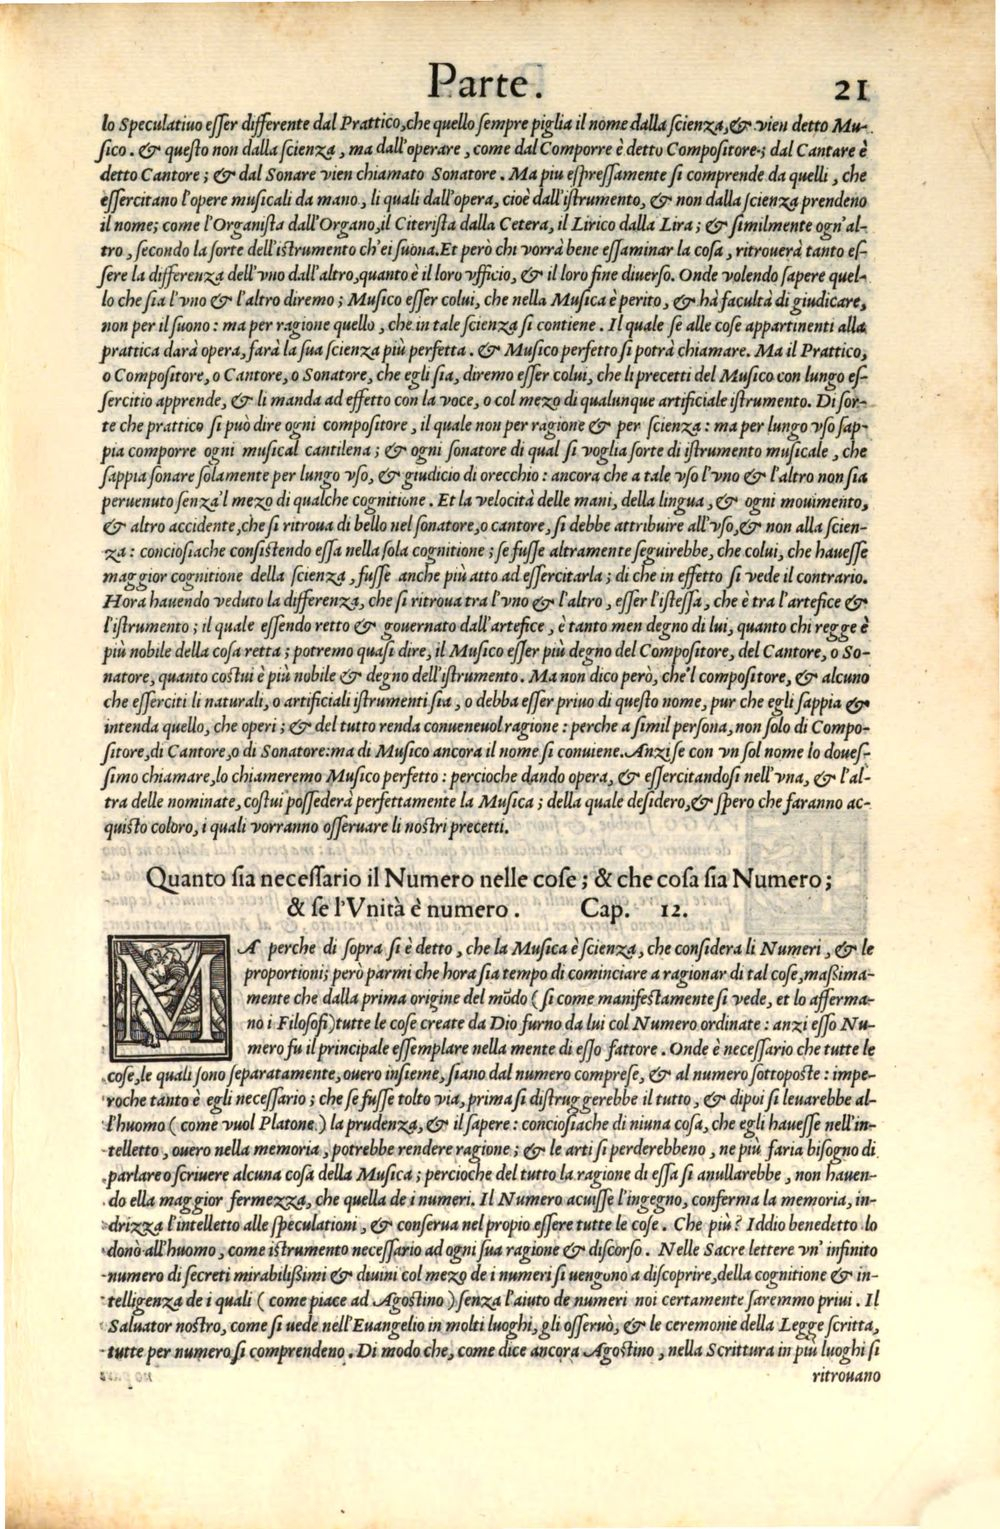 Parte. 21
lo Speculatiuo eſſer differente dal Prattico, che quello ſempre piglia il nome dalla ſcienza, & vien detto Mu-
ſico. & queſto non dalla ſcienza, ma dall'operare, come dal Comporre è detto Compoſitore; dal Cantare è
detto Cantore; & dal Sonare vien chiamato Sonatore. Ma piu eſpreſſamente ſi comprende da quelli, che
eſſercitano l'opere muſicali da mano, li quali dall'opera, cioè dall'iſtrumento, & non dalla ſcienza prendeno
il nome; come l'Organiſta dall'Organo, il Citeriſta dalla Cetera, il Lirico dalla Lira; & ſimilmente ogn'al-
tro, ſecondo la ſorte dell'iſtrumento ch'ei ſuona. Et però chi vorrà bene eſſaminar la coſa, ritrouerà tanto eſ-
ſere la differenza dell'vno dall'altro, quanto è il loro vfficio, & il loro fine diuerſo. Onde volendo ſapere quel-
lo che ſia l'vno & l'altro diremo; Muſico eſſer colui, che nella Muſica è perito, & hà facultà di giudicare,
non per il ſuono: ma per ragione quello, che in tale ſcienza ſi contiene. Il quale ſe alle coſe appartinenti alla
prattica darà opera, farà la ſua ſcienza più perfetta. & Muſico perfetto ſi potrà chiamare. Ma il Prattico,
o Compoſitore, o Cantore, o Sonatore, che egli ſia, diremo eſſer colui, che li precetti del Muſico con lungo eſ-
ſercitio apprende, & li manda ad effetto con la voce, o col mezo di qualunque artificiale iſtrumento. Di ſor-
te che prattico ſi può dire ogni compoſitore, il quale non per ragione & per ſcienza: ma per lungo vſo ſap-
pia comporre ogni muſical cantilena; & ogni ſonatore di qual ſi voglia ſorte di iſtrumento muſicale, che
ſappia ſonare ſolamente per lungo vſo, & giudicio di orecchio: ancora che a tale vſo l'vno & l'altro non ſia
peruenuto ſenza'l mezo di qualche cognitione. Et la velocità delle mani, della lingua, & ogni mouimento,
& altro accidente, che ſi ritroua di bello nel ſonatore, o cantore, ſi debbe attribuire all'vſo, & non alla ſcien-
za: concioſiache conſiſtendo eſſa nella ſola cognitione; ſe fuſſe altramente ſeguirebbe, che colui, che haueſſe
maggior cognitione della ſcienza, fuſſe anche più atto ad eſſercitarla; di che in effetto ſi vede il contrario.
Hora hauendo veduto la differenza, che ſi ritroua tra l'vno & l'altro, eſſer l'iſteſſa, che è tra l'artefice &
l'iſtrumento; il quale eſſendo retto & gouernato dall'artefice, è tanto men degno di lui, quanto chi regge è
più nobile della coſa retta; potremo quaſi dire, il Muſico eſſer più degno del Compoſitore, del Cantore, o So-
natore, quanto coſtui è più nobile & degno dell'iſtrumento. Ma non dico però, che'l compoſitore, & alcuno
che eſſerciti li naturali, o artificiali iſtrumenti ſia, o debba eſſer priuo di queſto nome, pur che egli ſappia &
intenda quello, che operi; & del tutto renda conueneuol ragione: perche a ſimil perſona, non ſolo di Compo-
ſitore, di Cantore, o di Sonatore: ma di Muſico ancora il nome ſi conuiene. Anzi ſe con vn ſol nome lo doueſ-
ſimo chiamare, lo chiameremo Muſico perfetto: percioche dando opera, & eſſercitandoſi nell'vna, & l'al-
tra delle nominate, coſtui poſſederà perfettamente la Muſica; della quale deſidero, & ſpero che faranno ac-
quiſto coloro, i quali vorranno oſſeruare li noſtri precetti.
Quanto ſia neceſſario il Numero nelle coſe; & che coſa ſia Numero;
& ſe l'Vnità è numero. Cap. 12.
MA perche di ſopra ſi è detto, che la Muſica è ſcienza, che conſidera li Numeri, & le
proportioni; però parmi che hora ſia tempo di cominciare a ragionar di tal coſe, maßima-
mente che dalla prima origine del mõdo (ſi come manifeſtamente ſi vede, et lo afferma-
no i Filoſofi) tutte le coſe create da Dio furno da lui col Numero ordinate: anzi eſſo Nu-
mero fu il principale eſſemplare nella mente di eſſo fattore. Onde è neceſſario che tutte le
coſe, le quali ſono ſeparatamente, ouero inſieme, ſiano dal numero compreſe, & al numero ſottopoſte: impe-
roche tanto è egli neceſſario; che ſe fuſſe tolto via, prima ſi diſtruggerebbe il tutto, & dipoi ſi leuarebbe al-
l'huomo (come vuol Platone) la prudenza, & il ſapere: concioſiache di niuna coſa, che egli haueſſe nell'in-
telletto, ouero nella memoria, potrebbe rendere ragione; & le arti ſi perderebbeno, ne più faria biſogno di
parlare o ſcriuere alcuna coſa della Muſica; percioche del tutto la ragione di eſſa ſi anullarebbe, non hauen-
do ella maggior fermezza, che quella de i numeri. Il Numero acuiſſe l'ingegno, conferma la memoria, in-
drizza l'intelletto alle ſpeculationi, & conſerua nel propio eſſere tutte le coſe. Che più? Iddio benedetto lo
donò all'huomo, come iſtrumento neceſſario ad ogni ſua ragione & diſcorſo. Nelle Sacre lettere vn' infinito
numero di ſecreti mirabilißimi & diuini col mezo de i numeri ſi uengono a diſcoprire, della cognitione & in-
telligenza de i quali (come piace ad Agoſtino) ſenza l'aiuto de numeri noi certamente ſaremmo priui. Il
Saluator noſtro, come ſi uede nell'Euangelio in molti luoghi, gli oſſeruò, & le ceremonie della Legge ſcritta,
tutte per numero ſi comprendeno. Di modo che, come dice ancora Agoſtino, nella Scrittura in più luoghi ſi
ritrouano